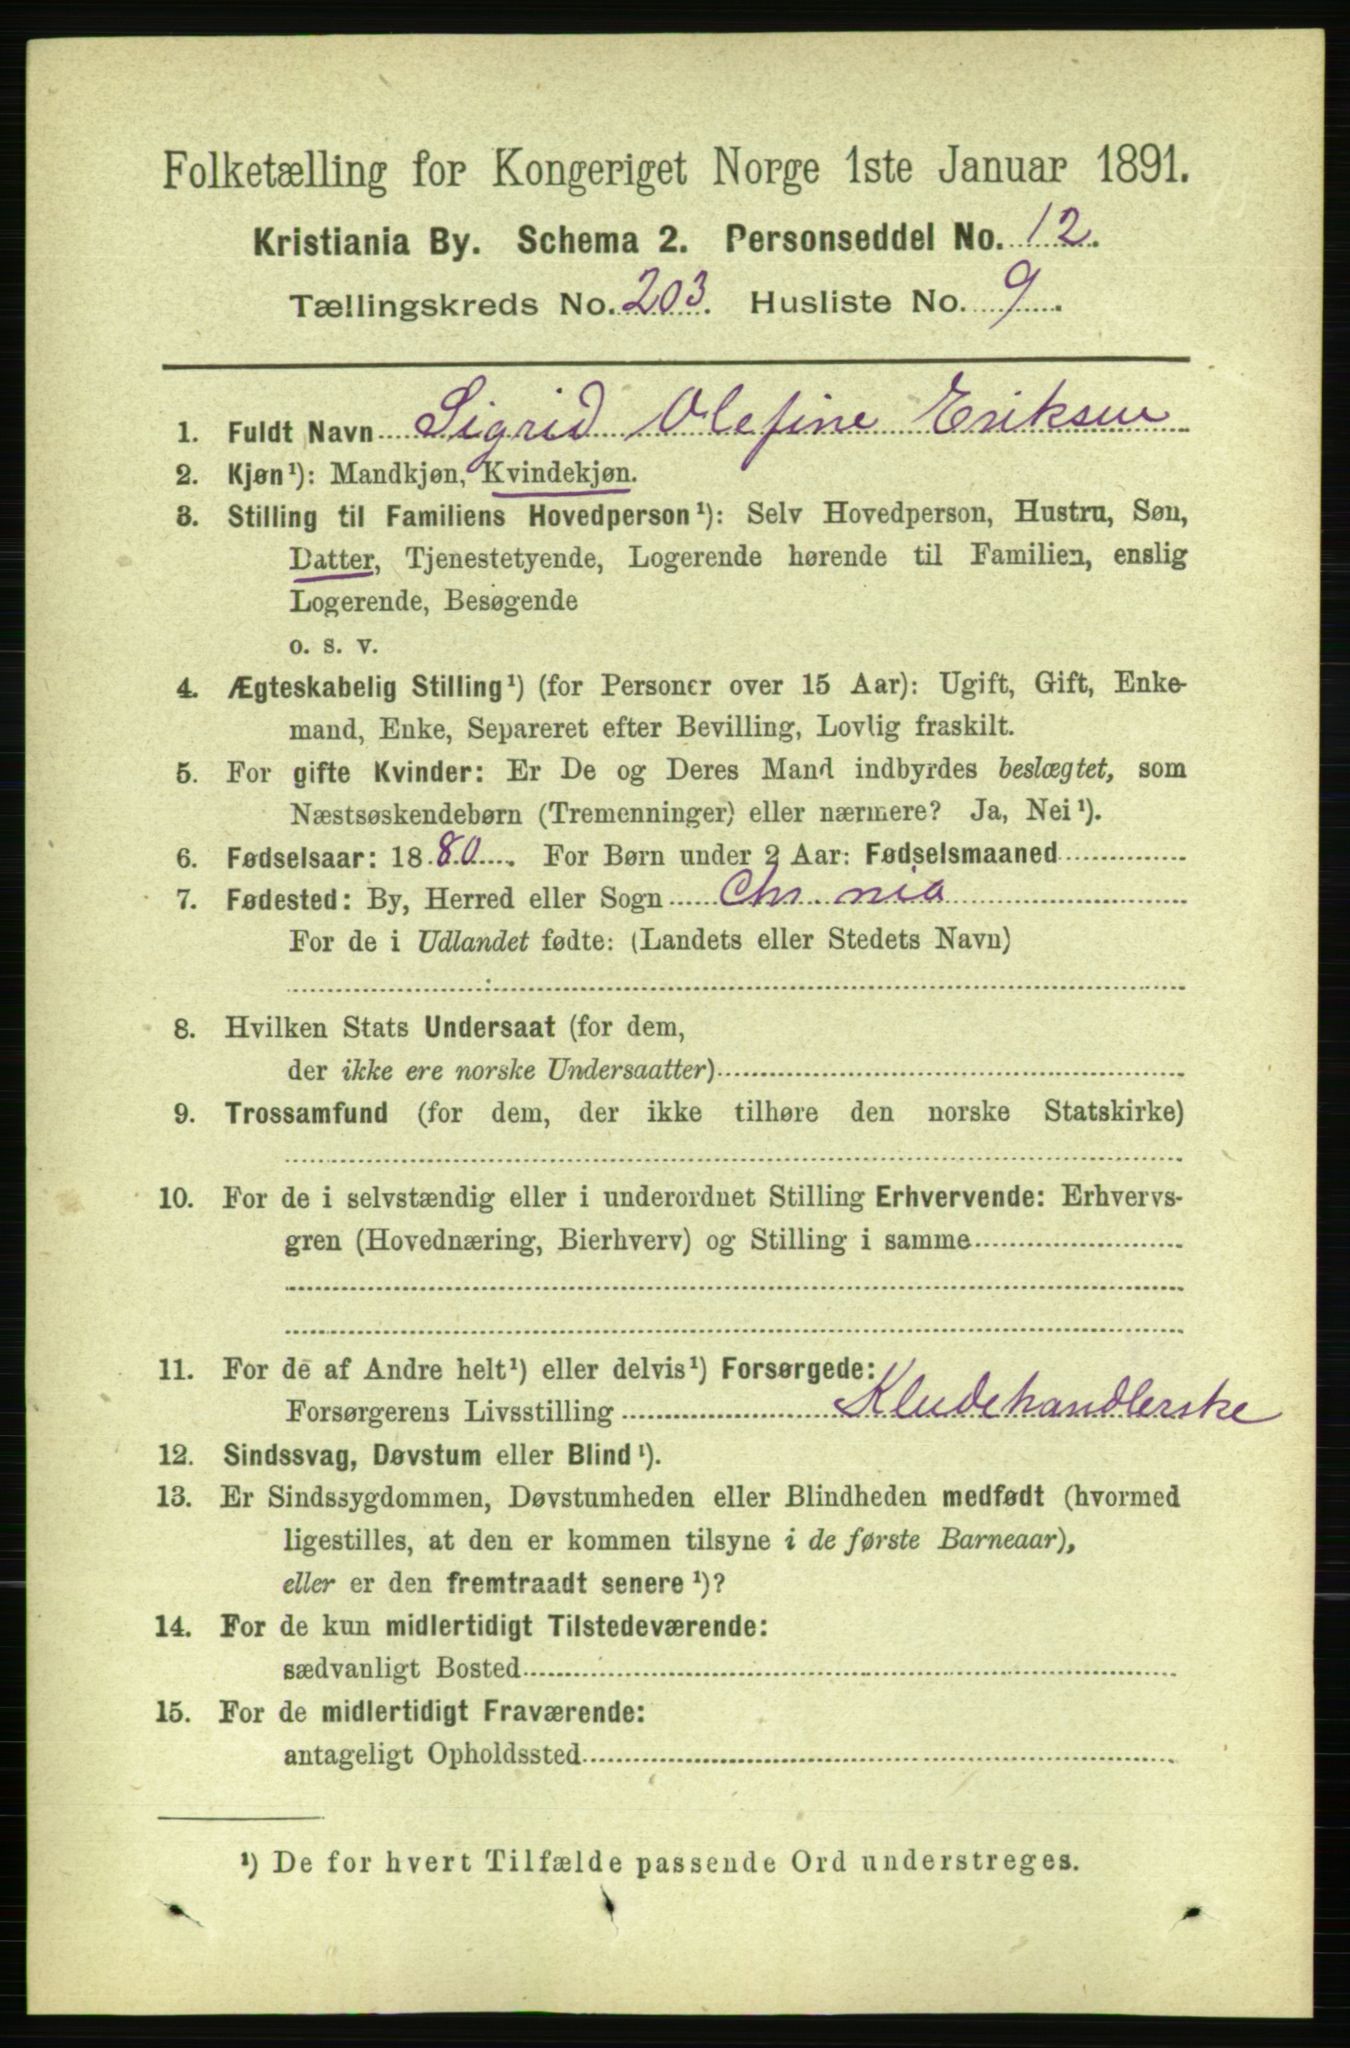 Folketælling for Kongeriget Norge 1ste Januar 1891.
Kristiania By. Schema 2. Personseddel No. 12.
Tællingskreds No. 203. Husliste No. 9.
1. Fuldt Navn Sigrid Olefine Eriksen
2. Kjøn¹): Mandkjøn, Kvindekjøn.
3. Stilling til Familiens Hovedperson¹): Selv Hovedperson, Hustru, Søn,
Datter, Tjenestetyende, Logerende hørende til Familien, enslig
Logerende, Besøgende
o. s. v.
4. Ægteskabelig Stilling¹) (for Personer over 15 Aar): Ugift, Gift, Enke-
mand, Enke, Separeret efter Bevilling, Lovlig fraskilt.
5. For gifte Kvinder: Er De og Deres Mand indbyrdes beslægtet, som
Næstsøskendebørn (Tremenninger) eller nærmere? Ja, Nei¹).
6. Fødselsaar: 1880. For Børn under 2 Aar: Fødselsmaaned
7. Fødested: By, Herred eller Sogn Chr.nia
For de i Udlandet fødte: (Landets eller Stedets Navn)
8. Hvilken Stats Undersaat (for dem,
der ikke ere norske Undersaatter)
9. Trossamfund (for dem, der ikke tilhøre den norske Statskirke)
10. For de i selvstændig eller i underordnet Stilling Erhvervende: Erhvervs-
gren (Hovednæring, Bierhverv) og Stilling i samme
11. For de af Andre helt¹) eller delvis¹) Forsørgede:
Forsørgerens Livsstilling Kludehandlerske
12. Sindssvag, Døvstum eller Blind¹).
13. Er Sindssygdommen, Døvstumheden eller Blindheden medfødt (hvormed
ligestilles, at den er kommen tilsyne i de første Barneaar),
eller er den fremtraadt senere¹)?
14. For de kun midlertidigt Tilstedeværende:
sædvanligt Bosted
15. For de midlertidigt Fraværende:
antageligt Opholdssted
¹) De for hvert Tilfælde passende Ord understreges.